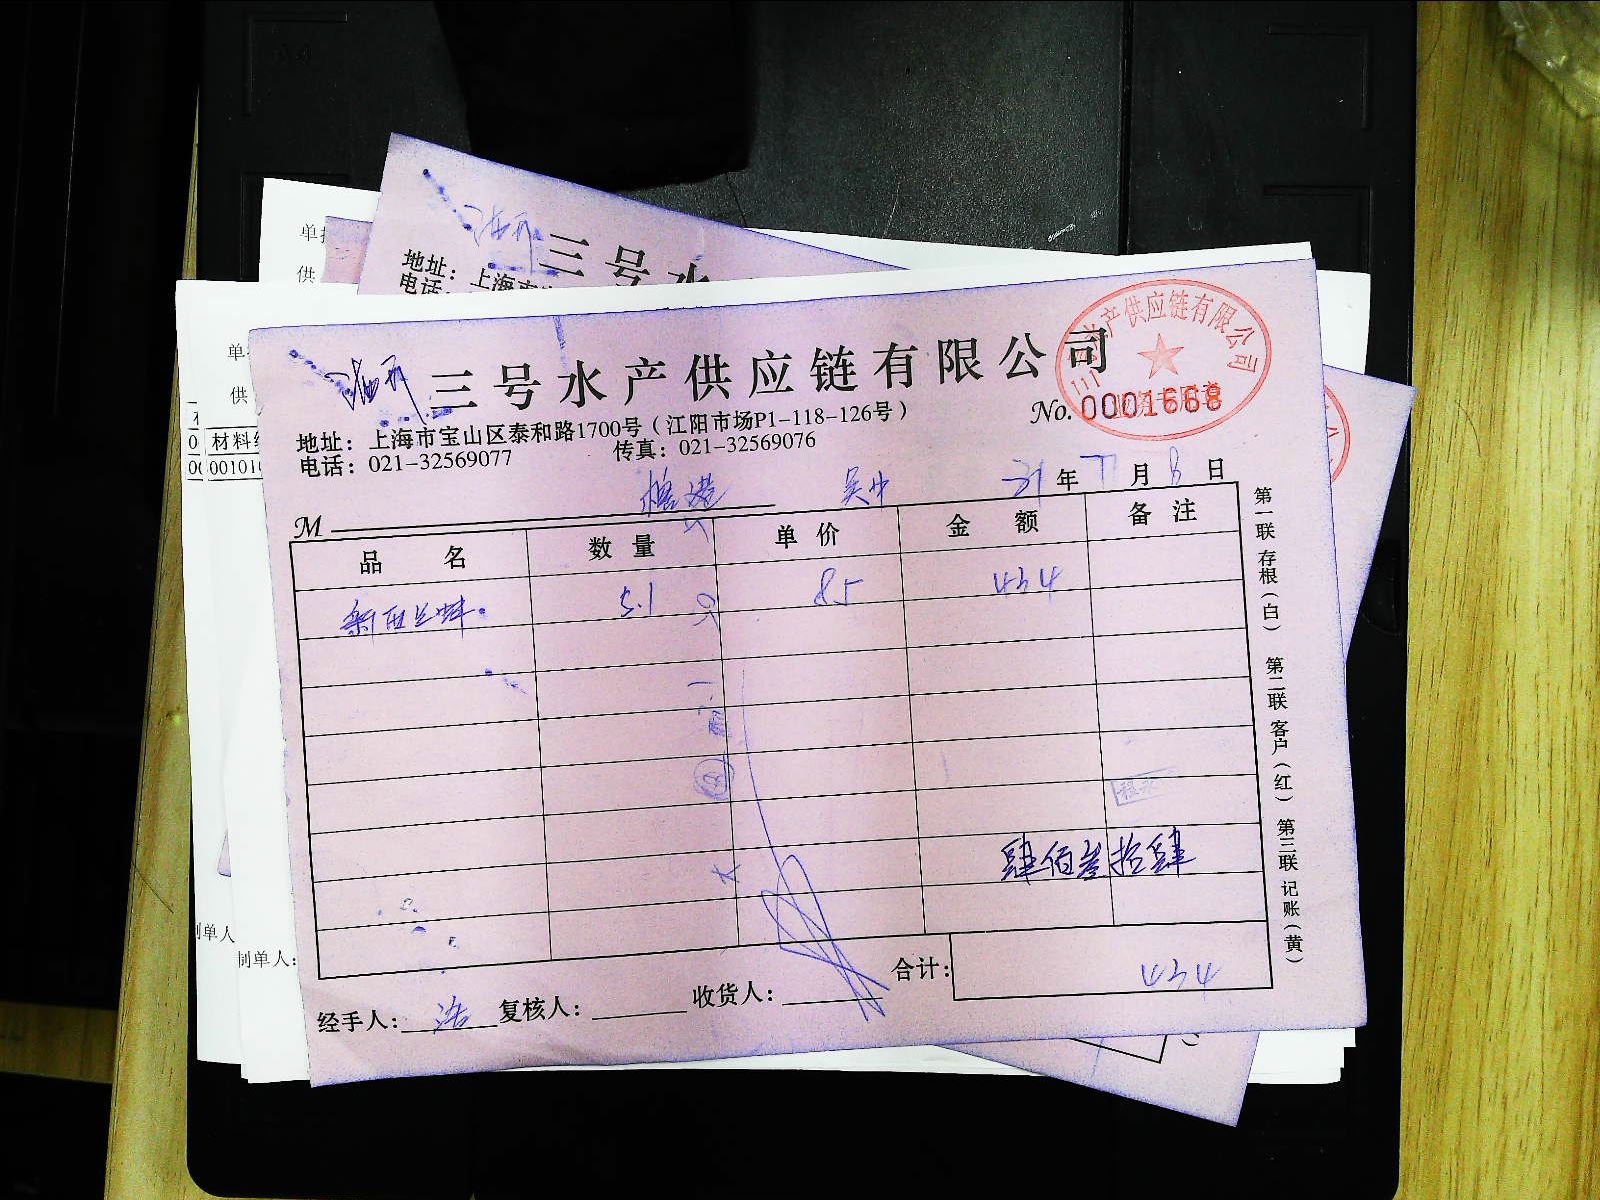 A4
单
供
三号水
地址：上海市
电话：
单
供
材料
001010
三号水产供应链有限公司
水产供应链有限公司
No. 0001668
地址：上海市宝山区泰和路1700号（江阳市场P1-118-126号）
电话：021-32569077 传真：021-32569076
吴中 年 月 日
M
品名 数量 单价 金额 备注
新西兰蚌 5.1 85 434
肆佰叁拾肆
合计： 434
经手人： 浩 复核人： 收货人：
第一联 存根（白） 第二联 客户（红） 第三联 记账（黄）
制单人
制单人：